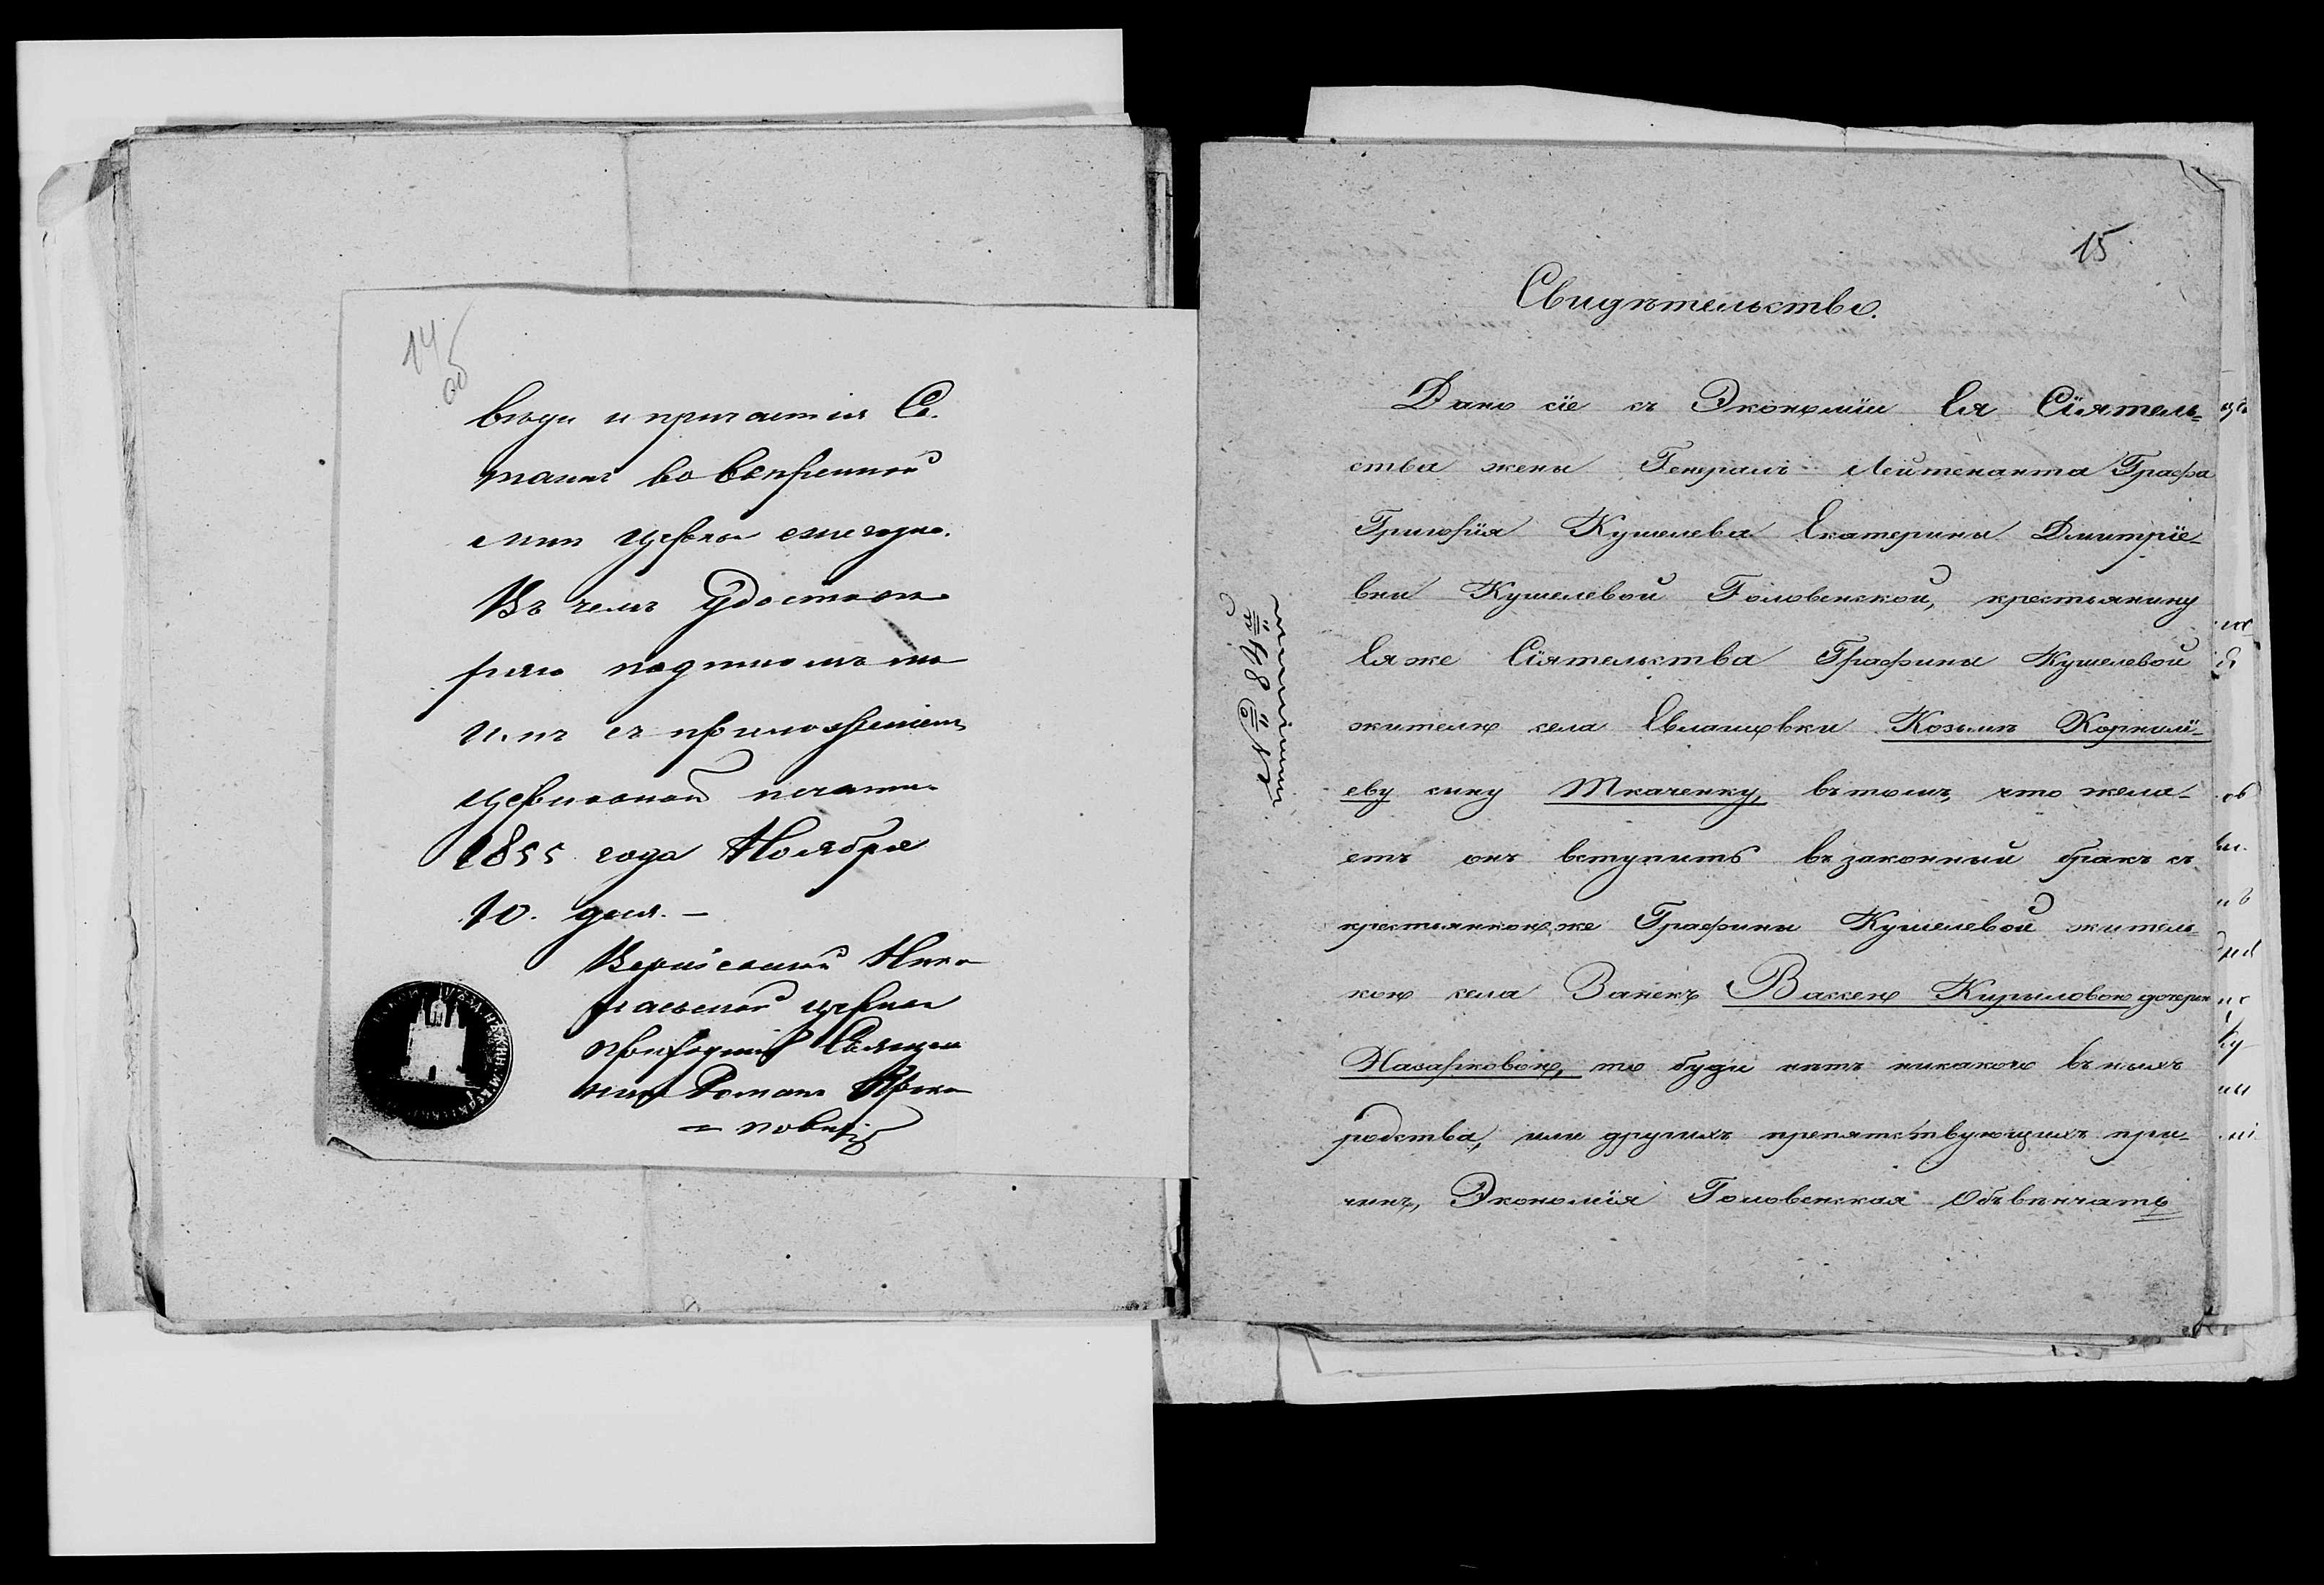 14
об
вѣди и причастія Св.
таинъ во
церкви ежегодно.
Въ чемъ Удостовѣ
ряю подписомъ по
имъ съ приложеніемъ
церковной печати
1855 года Ноября
10. дня. —
Нико
лаевской церкви
Священ
никъ Романъ Проко
= повичъ
15
Свидѣтельство.
Дано сіе съ Экономіи Ея Сіятель-
ства жены Генералъ Лейтенанта Графа
Григорія Кушелева Екатерины Дмитріе-
вны Кушелевой Головенской, крестьянину
Ея же Сіятельства Графини Кушелевой
жителю села Евлашовки Козьмѣ Корнилі-
еву сыну Ткаченку, въ томъ, что жела-
етъ онъ вступить въ законный бракъ съ
крестьянкою же Графини Кушелевой житель-
кою села Заньк Вассою Кириловою дочерью
Назарковою, то буди нѣтъ никакого въ нихъ
родства, или другихъ препятствующихъ при-
чинъ, Экономія Головенская Обвѣнчать